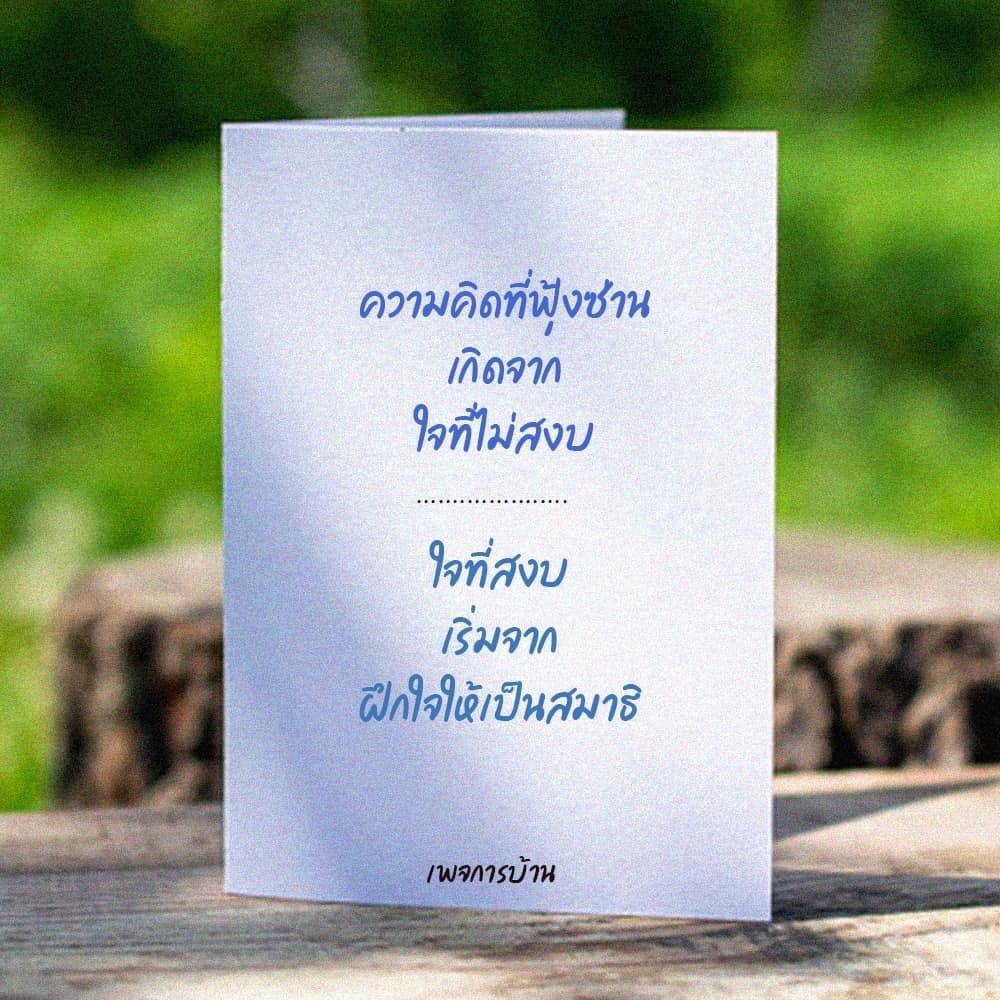 ความคิดที่ฟุ้งซ่าน
เกิดจาก
ใจที่ไม่สงบ
.....................
ใจที่สงบ
เริ่มจาก
ฝึกใจให้เป็นสมาธิ
เพจการบ้าน